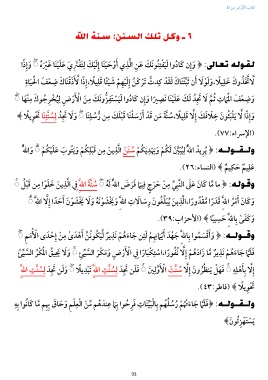 كتاب الأرض من الله
٦ ـ وكل تلك السنن: سنة الله
لقوله تعالى: ﴿ وَإِن كَادُوا لَيَفْتِنُونَكَ عَنِ الَّذِي أَوْحَيْنَا إِلَيْكَ لِتَفْتَرِيَ عَلَيْنَا غَيْرَهُ ۖ وَإِذًا
لَّاتَّخَذُوكَ خَلِيلًا، وَلَوْلَا أَن ثَبَّتْنَاكَ لَقَدْ كِدتَّ تَرْكَنُ إِلَيْهِمْ شَيْئًا قَلِيلًا، إِذًا لَّأَذَقْنَاكَ ضِعْفَ الْحَيَاةِ
وَضِعْفَ الْمَمَاتِ ثُمَّ لَا تَجِدُ لَكَ عَلَيْنَا نَصِيرًا وَإِن كَادُوا لَيَسْتَفِزُّونَكَ مِنَ الْأَرْضِ لِيُخْرِجُوكَ مِنْهَا ۖ
وَإِذًا لَّا يَلْبَثُونَ خِلَافَكَ إِلَّا قَلِيلًا، سُنَّةَ مَن قَدْ أَرْسَلْنَا قَبْلَكَ مِن رُّسُلِنَا ۖ وَلَا تَجِدُ لِسُنَّتِنَا تَحْوِيلًا ﴾
(الإسراء:٧٧).
ولقوله: ﴿ يُرِيدُ اللَّهُ لِيُبَيِّنَ لَكُمْ وَيَهْدِيَكُمْ سُنَنَ الَّذِينَ مِن قَبْلِكُمْ وَيَتُوبَ عَلَيْكُمْ ۗ وَاللَّهُ
عَلِيمٌ حَكِيمٌ ﴾ (النساء:٢٦).
وقوله: ﴿ مَا مَّا كَانَ عَلَى النَّبِيِّ مِنْ حَرَجٍ فِيمَا فَرَضَ اللَّهُ لَهُ ۖ سُنَّةَ اللَّهِ فِي الَّذِينَ خَلَوْا مِن قَبْلُ ۚ
وَكَانَ أَمْرُ اللَّهِ قَدَرًا مَّقْدُورًا، الَّذِينَ يُبَلِّغُونَ رِسَالَاتِ اللَّهِ وَيَخْشَوْنَهُ وَلَا يَخْشَوْنَ أَحَدًا إِلَّا اللَّهَ ۗ
وَكَفَىٰ بِاللَّهِ حَسِيبًا ﴾ (الأحزاب:٣٩).
وقوله: ﴿ وَأَقْسَمُوا بِاللَّهِ جَهْدَ أَيْمَانِهِمْ لَئِن جَاءَهُمْ نَذِيرٌ لَّيَكُونُنَّ أَهْدَىٰ مِنْ إِحْدَى الْأُمَمِ ۖ
فَلَمَّا جَاءَهُمْ نَذِيرٌ مَّا زَادَهُمْ إِلَّا نُفُورًا، اسْتِكْبَارًا فِي الْأَرْضِ وَمَكْرَ السَّيِّئِ ۚ وَلَا يَحِيقُ الْمَكْرُ السَّيِّئُ
إِلَّا بِأَهْلِهِ ۚ فَهَلْ يَنظُرُونَ إِلَّا سُنَّتَ الْأَوَّلِينَ ۚ فَلَن تَجِدَ لِسُنَّتِ اللَّهِ تَبْدِيلًا ۖ وَلَن تَجِدَ لِسُنَّتِ اللَّهِ
تَحْوِيلًا ﴾ (فاطر:٤٣).
ولقوله: ﴿فَلَمَّا جَاءَتْهُمْ رُسُلُهُم بِالْبَيِّنَاتِ فَرِحُوا بِمَا عِندَهُم مِّنَ الْعِلْمِ وَحَاقَ بِهِم مَّا كَانُوا بِهِ
يَسْتَهْزِئُونَ﴾
93